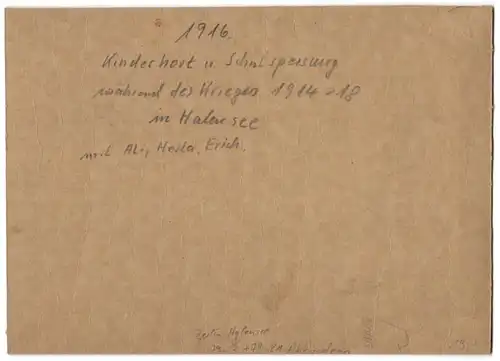 1916.
Kinderhort u. Schulspeisung
während des Krieges 1914-18
in Halensee
mit Erich.
Berlin Halensee